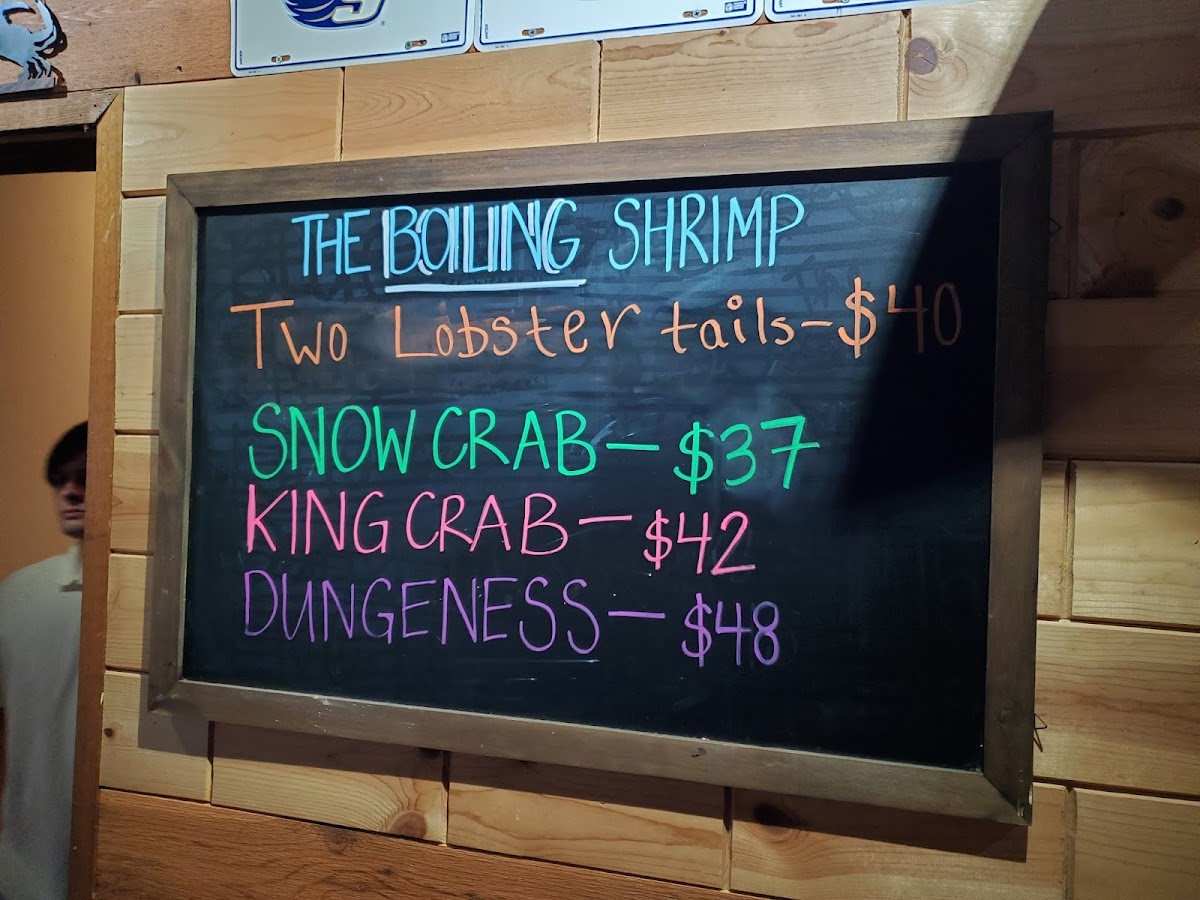 THE BOILING SHRIMP
Two Lobster tails-$40
SNOW CRAB-$37
KING CRAB-$42
DUNGENESS-$48